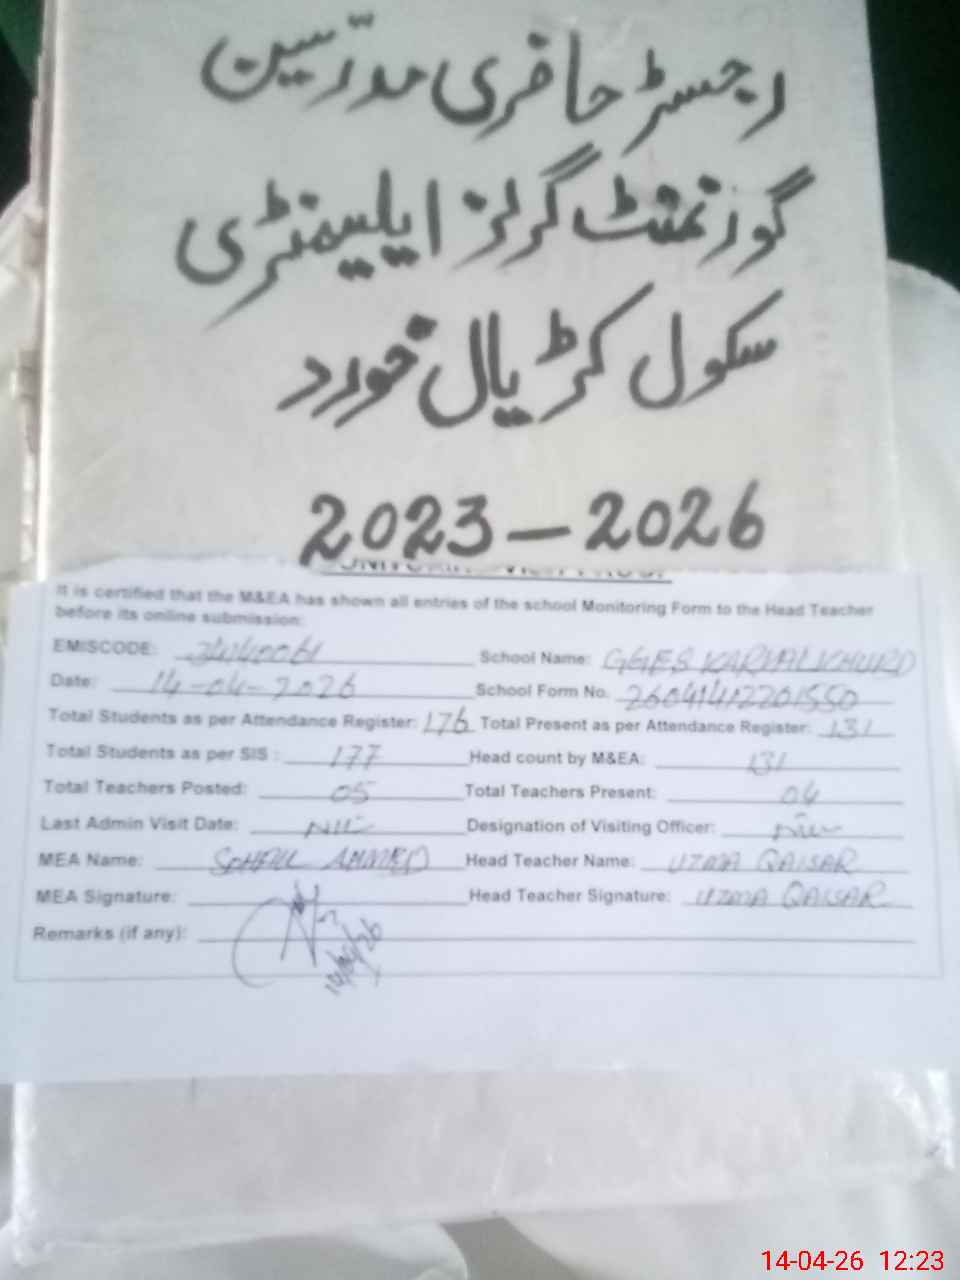 رجسٹر حاضری مدرسین
گورنمنٹ گرلز ایلیمنٹری
سکول کڑیال خورد
2023-2026
It is certified that the M&EA has shown all entries of the school Monitoring Form to the Head Teacher
before its online submission:
EMISCODE: School Name: GGES KARYAL KHURD
Date: 14-04-2026 School Form No. 26041412201550
Total Students as per Attendance Register: 176 Total Present as per Attendance Register: 131
Total Students as per SIS : 177 Head count by M&EA: 131
Total Teachers Posted: 05 Total Teachers Present: 04
Last Admin Visit Date: NIL Designation of Visiting Officer: NIL
MEA Name: SOHAIL AHMED Head Teacher Name: UZMA QAISAR
MEA Signature: Head Teacher Signature: UZMA QAISAR
Remarks (if any): 14/04/26
14-04-26 12:23